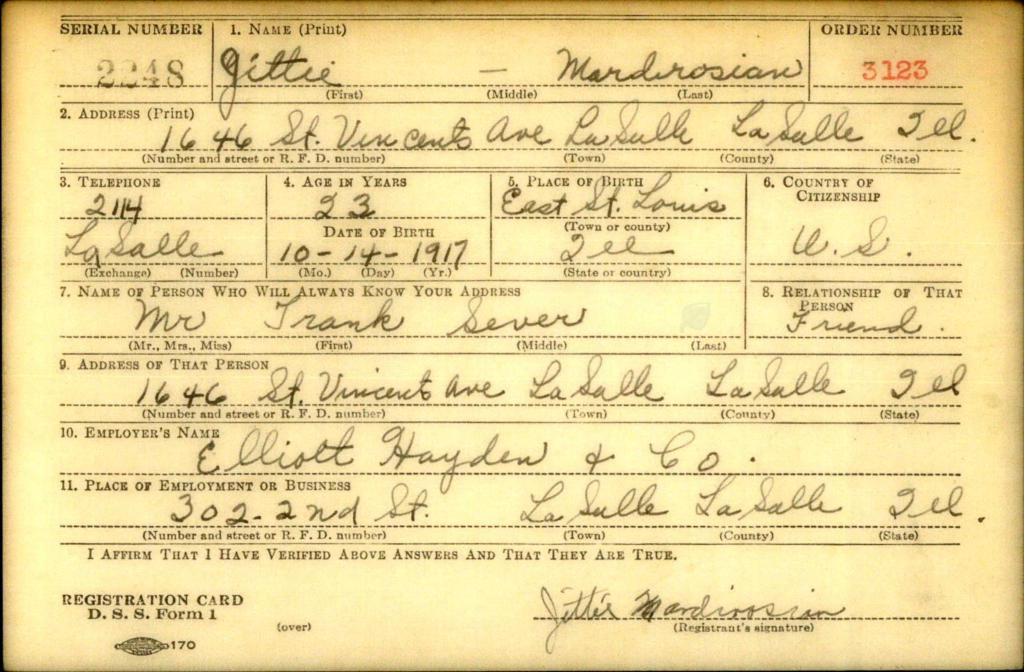 SERIAL NUMBER 1. NAME (Print) ORDER NUMBER
2248 Jittie — Mardirosian 3123
(First) (Middle) (Last)
2. ADDRESS (Print)
1646 St. Vincents Ave LaSalle LaSalle Ill.
(Number and street or R. F. D. number) (Town) (County) (State)
3. TELEPHONE 4. AGE IN YEARS 5. PLACE OF BIRTH 6. COUNTRY OF CITIZENSHIP
2114 23 East St. Louis
(Town or county)
DATE OF BIRTH
LaSalle 10-14-1917 Ill U. S.
(Exchange) (Number) (Mo.) (Day) (Yr.) (State or country)
7. NAME OF PERSON WHO WILL ALWAYS KNOW YOUR ADDRESS 8. RELATIONSHIP OF THAT PERSON
Mr Frank Sever Friend.
(Mr., Mrs., Miss) (First) (Middle) (Last)
9. ADDRESS OF THAT PERSON
1646 St. Vincents Ave LaSalle LaSalle Ill
(Number and street or R. F. D. number) (Town) (County) (State)
10. EMPLOYER'S NAME
Elliott Hayden & Co.
11. PLACE OF EMPLOYMENT OR BUSINESS
302-2nd St. LaSalle LaSalle Ill.
(Number and street or R. F. D. number) (Town) (County) (State)
I AFFIRM THAT I HAVE VERIFIED ABOVE ANSWERS AND THAT THEY ARE TRUE.
REGISTRATION CARD
D. S. S. Form 1
(over)
Jittie Mardirosian
(Registrant's signature)
170